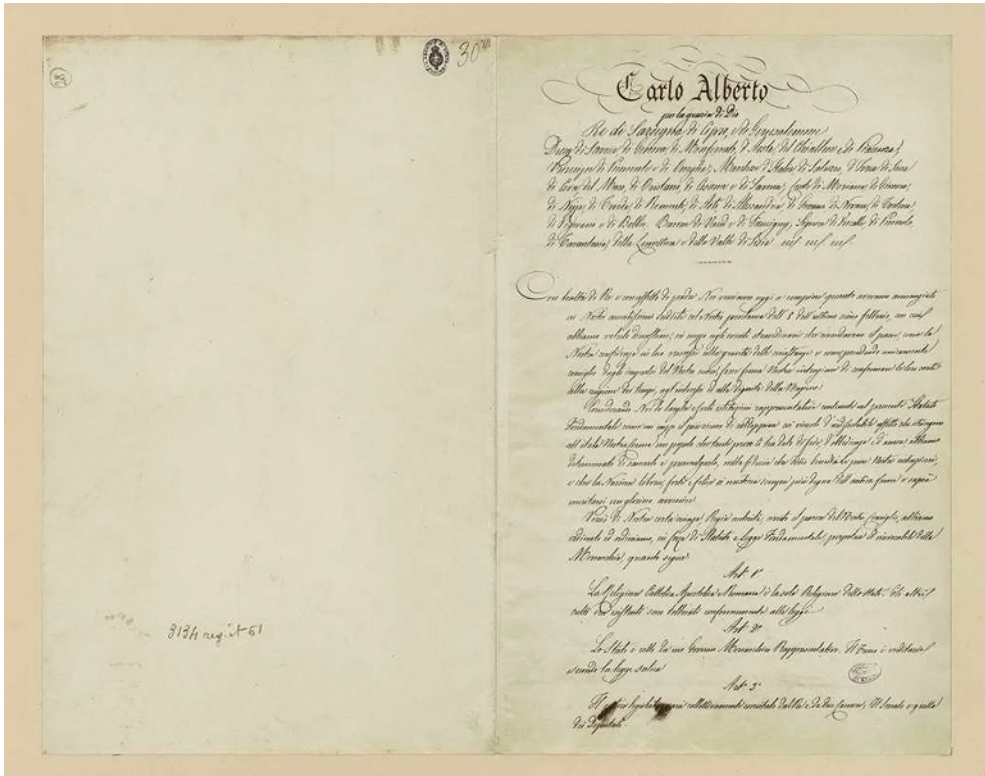 30
Carlo Alberto
per la grazia di Dio
Re di Sardegna, di Cipro, e di Gerusalemme
Duca di Savoia, di Genova, di Monferrato, d'Aosta, del Chiablese, e di Piacenza;
Principe di Piemonte e di Oneglia; Marchese d'Italia, di Saluzzo, d'Ivrea, di Susa
di Ceva, del Maro, di Oristano, di Cesana e di Savona; Conte di Moriana, di Ginevra,
di Nizza, di Tenda, di Romonte, di Asti, di Alessandria, di Goceano, di Novara, di Tortona,
di Vigevano e di Bobbio; Barone di Vaud e di Faucigny; Signore di Vercelli, di Pinerolo,
di Tarantasia, della Lomellina e della Valle di Sesia
Con lealtà di Re e con affetto di padre Noi veniamo oggi a compiere quanto avevamo annunziato
ai Nostri amatissimi sudditi col Nostro proclama dell' 8 dell'ultimo scorso febbraio, con cui
abbiamo voluto dimostrare, in mezzo agli eventi straordinarii che circondavano il paese, come la
Nostra confidenza in loro crescesse colla gravità delle circostanze, e come prendendo unicamente
consiglio dagli impulsi del Nostro cuore, fosse ferma Nostra intenzione di conformare le loro sorti
alla ragione dei tempi, agl'interessi ed alla dignità della Nazione.
Considerando Noi le larghe e forti istituzioni rappresentative contenute nel presente Statuto
Fondamentale come un mezzo il più sicuro di raddoppiare coi vincoli d'indissolubile affetto che stringono
all'itala Nostra Corona un popolo, che tante prove Ci ha dato di fede, d'obbedienza e d'amore, abbiamo
determinato di sancirlo e promulgarlo, nella fiducia che Iddio benedirà le pure Nostre intenzioni,
e che la Nazione libera, forte e felice si mostrerà sempre più degna dell'antica fama e saprà
meritarsi un glorioso avvenire.
Perciò di Nostra certa scienza, Regia autorità, avuto il parere del Nostro Consiglio, abbiamo
ordinato ed ordiniamo, in forza di Statuto e Legge Fondamentale, perpetua ed irrevocabile della
Monarchia, quanto segue:
Art. 1°
La Religione Cattolica Apostolica e Romana è la sola Religione dello Stato. Gli altri
culti ora esistenti sono tollerati conformemente alle leggi.
Art. 2°
Lo Stato è retto da un Governo Monarchico Rappresentativo. Il Trono è ereditario
secondo la legge salica.
Art. 3°
Il potere legislativo sarà collettivamente esercitato dal Re e da due Camere, Il Senato e quella
dei Deputati.
3134 reg. at 61